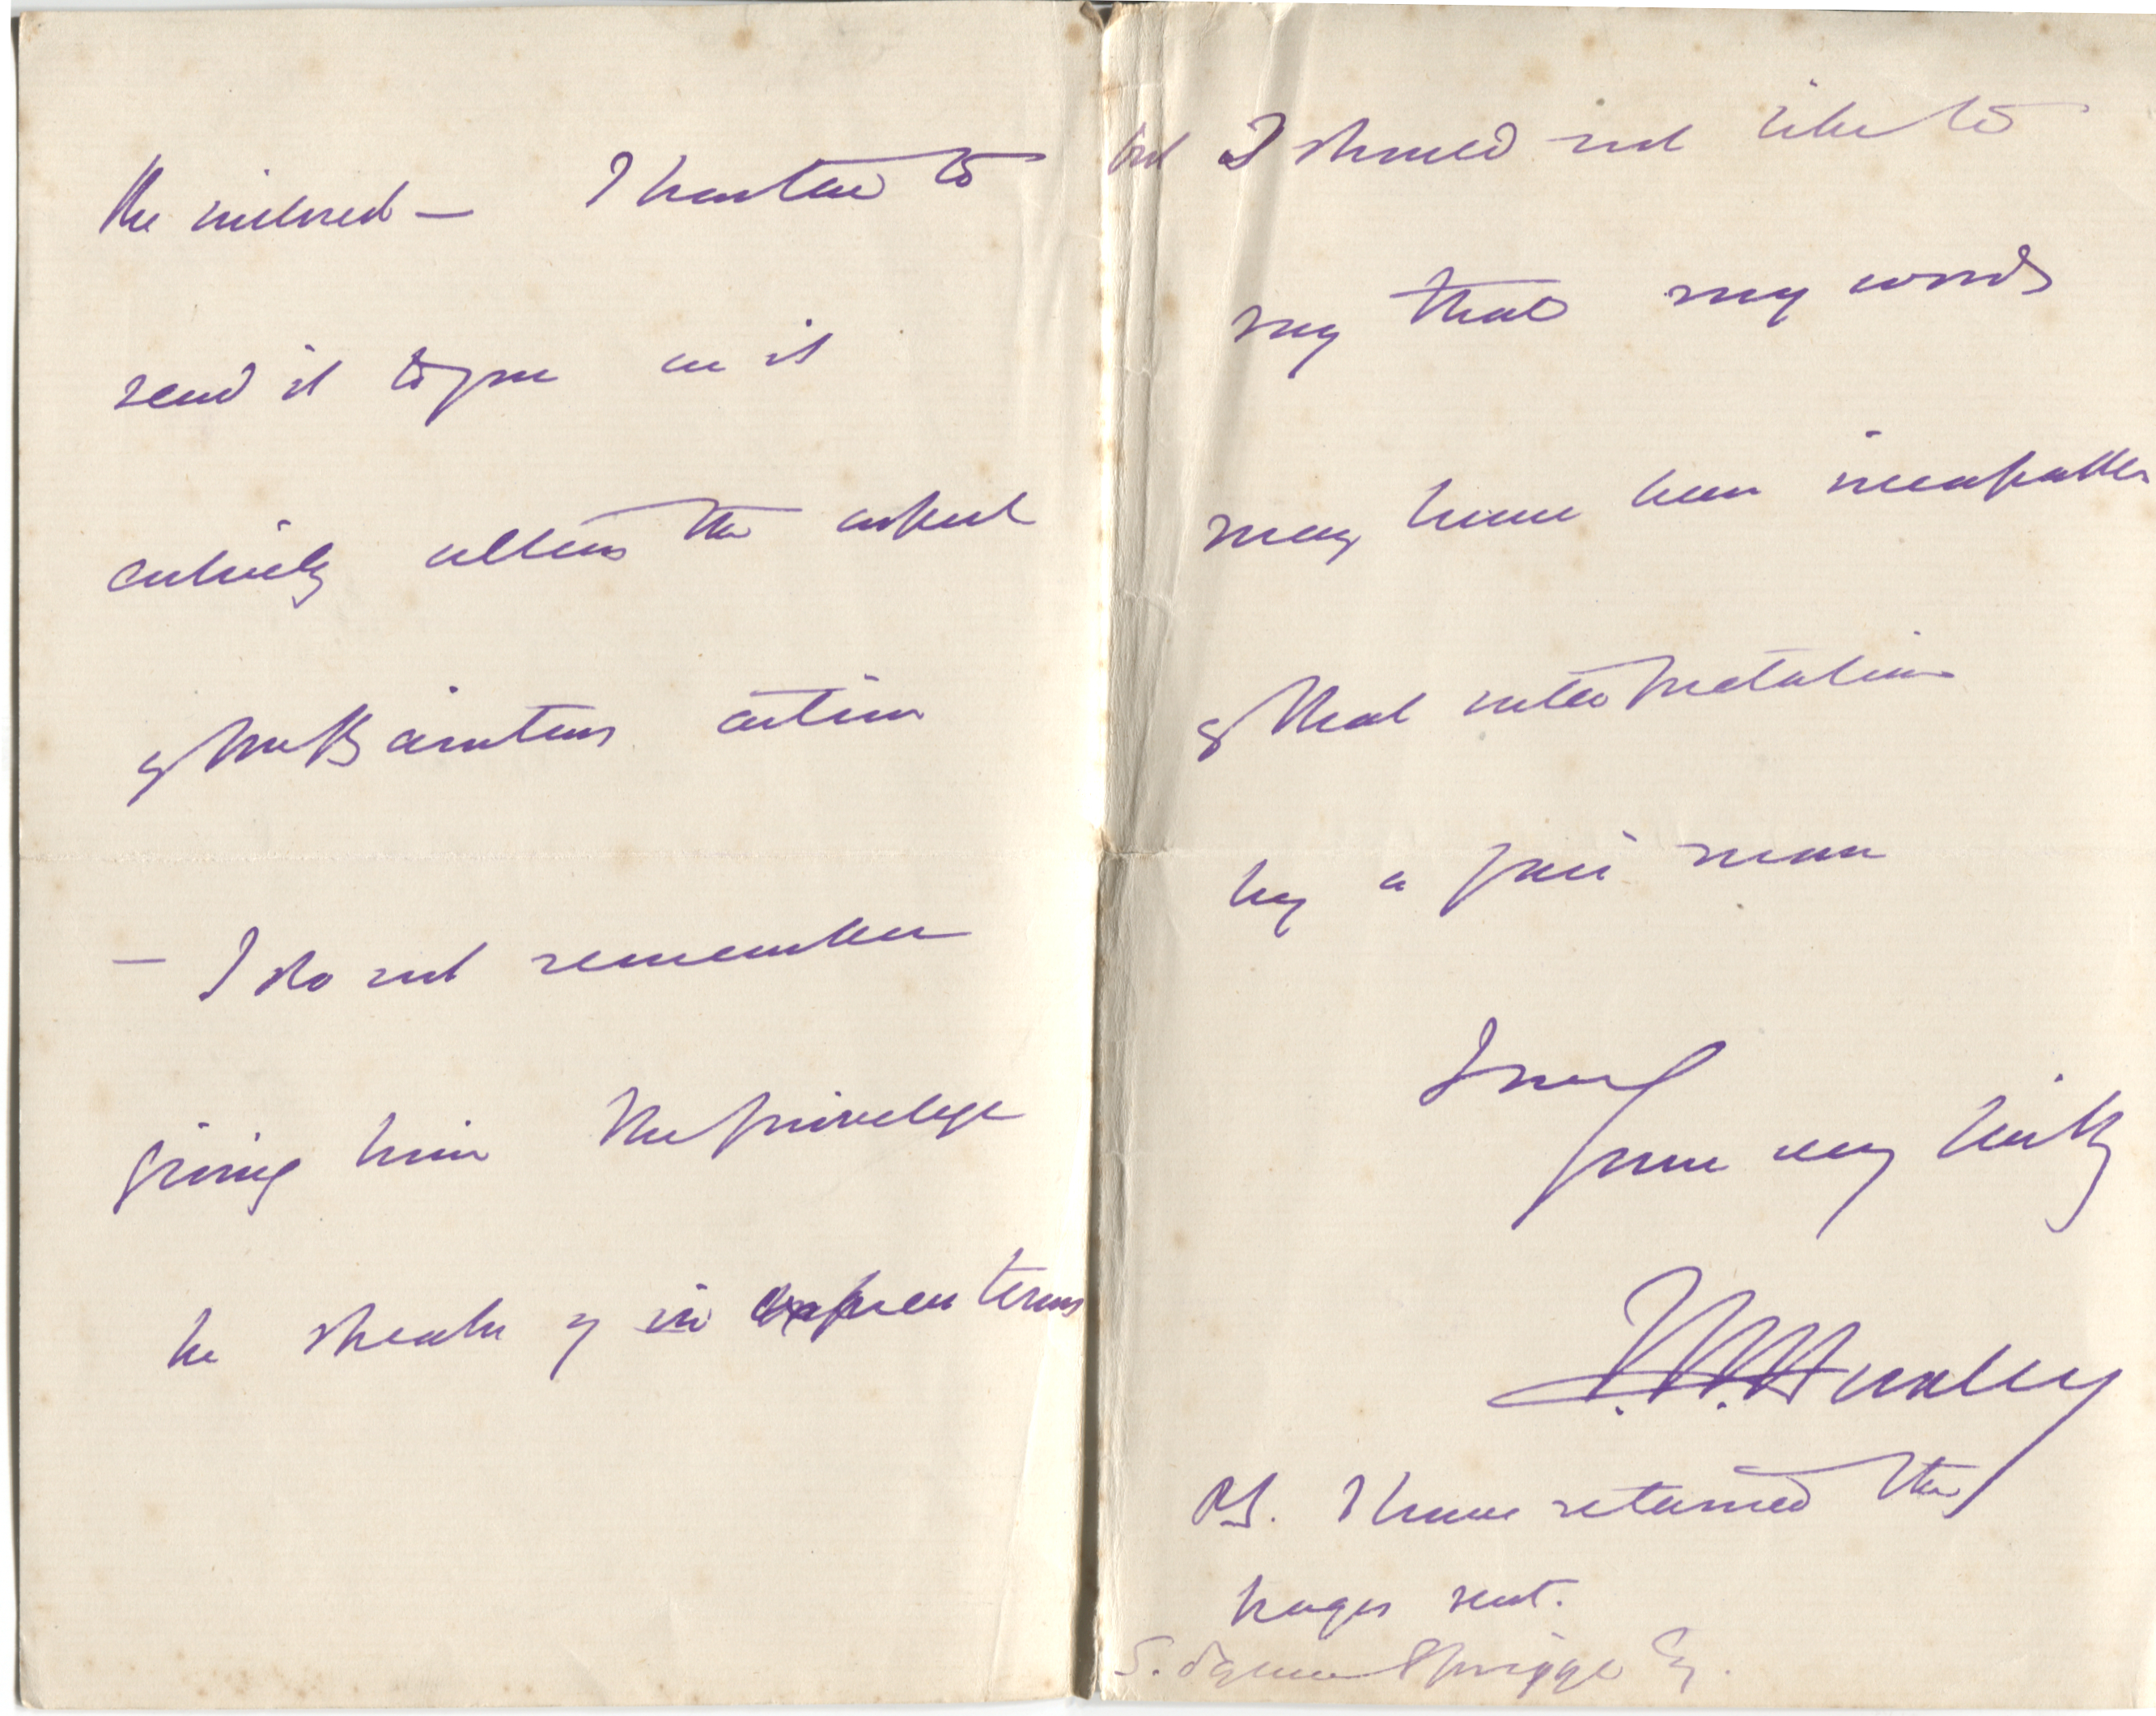 the inclosed — I hasten to
send it to you as it
entirely alters the aspect
of Mr Bainton's action
— I do not remember
giving him the privilege
he speaks of in express terms
but I should not like to
say that my words
may have been incapable
of that interpretation
by a fair man
I am
yours very truly
T. H. Huxley
PS. I have returned the
pages sent.
S. Squire Sprigge Esq.